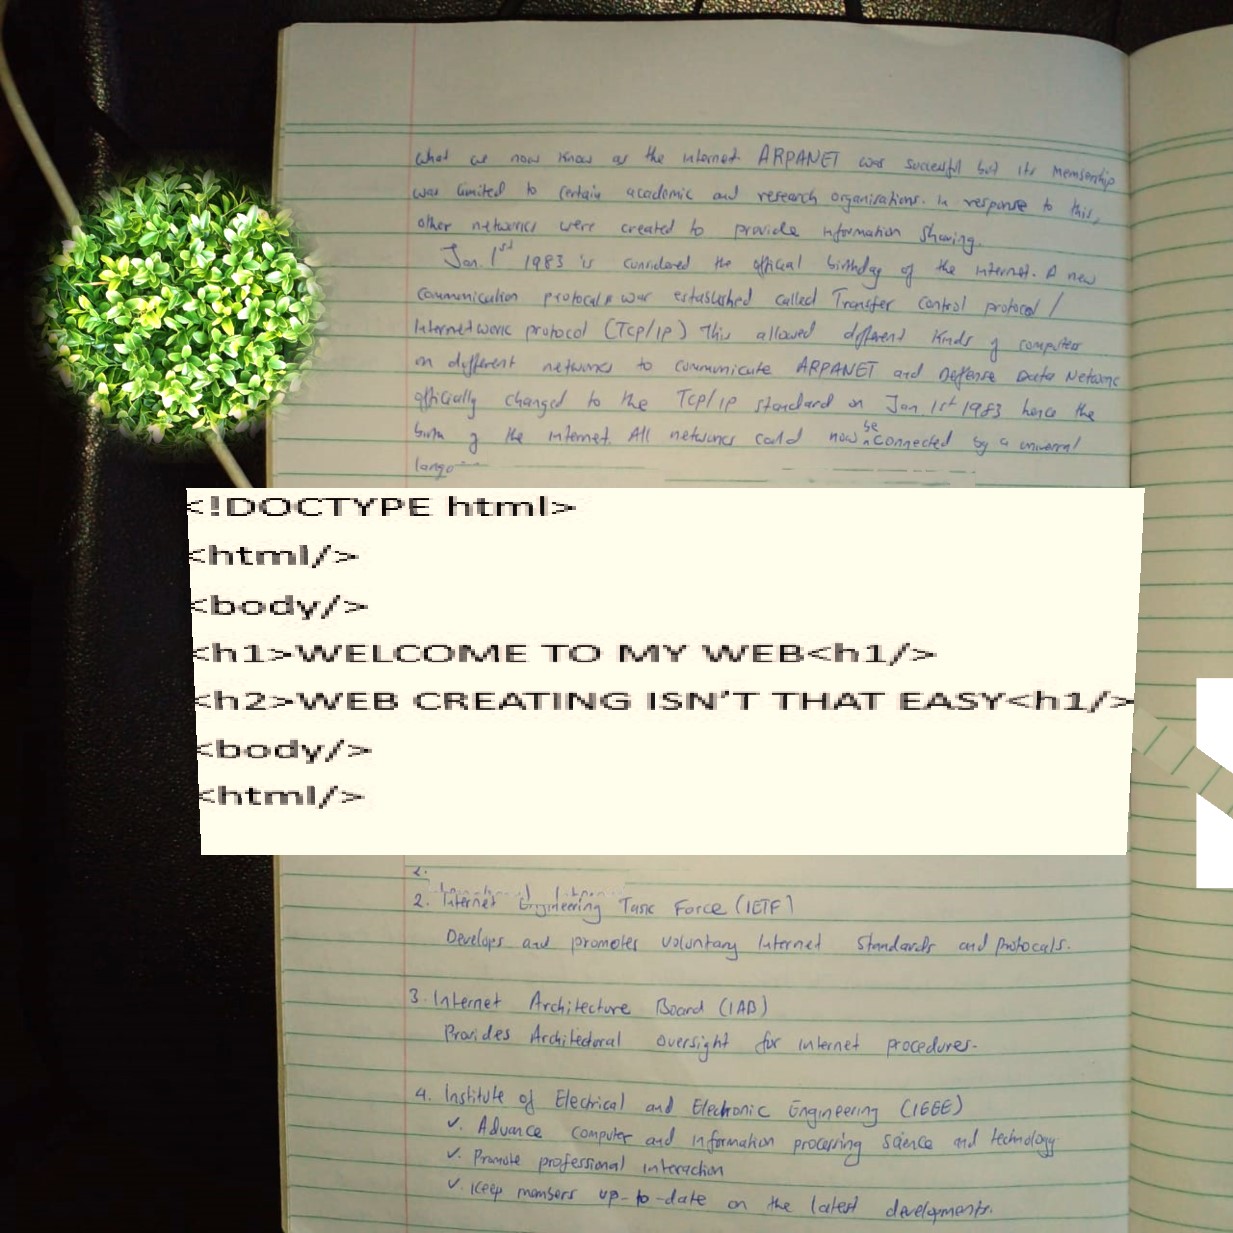 what we now know as the internet. ARPANET was successful but its membership
was limited to certain academic and research organisations. In response to this,
other networks were created to provide information sharing.
Jan. 1st 1983 is considered the official birthday of the internet. A new
communication protocols was established called Transfer Control protocol /
Internetwork protocol (TCP/IP) This allowed different kinds of computer
on different networks to communicate ARPANET and Defense Data Network
officially changed to the TCP/IP standard on Jan 1st 1983 hence the
birth of the internet. All networks could now be connected by a universal
<!DOCTYPE html>
<html/>
<body/>
<h1>WELCOME TO MY WEB<h1/>
<h2>WEB CREATING ISN'T THAT EASY<h1/>
<body/>
<html/>
2. Internet Engineering Task Force (IETF)
Develops and promotes voluntary Internet standards and protocals.
3. Internet Architecture Board (IAB)
Provides Architectural oversight for internet procedures.
4. Institute of Electrical and Electronic Engineering (IEEE)
✓. Advance computer and information processing science and technology
✓. Promote professional interaction
✓. Keep members up-to-date on the latest developments.